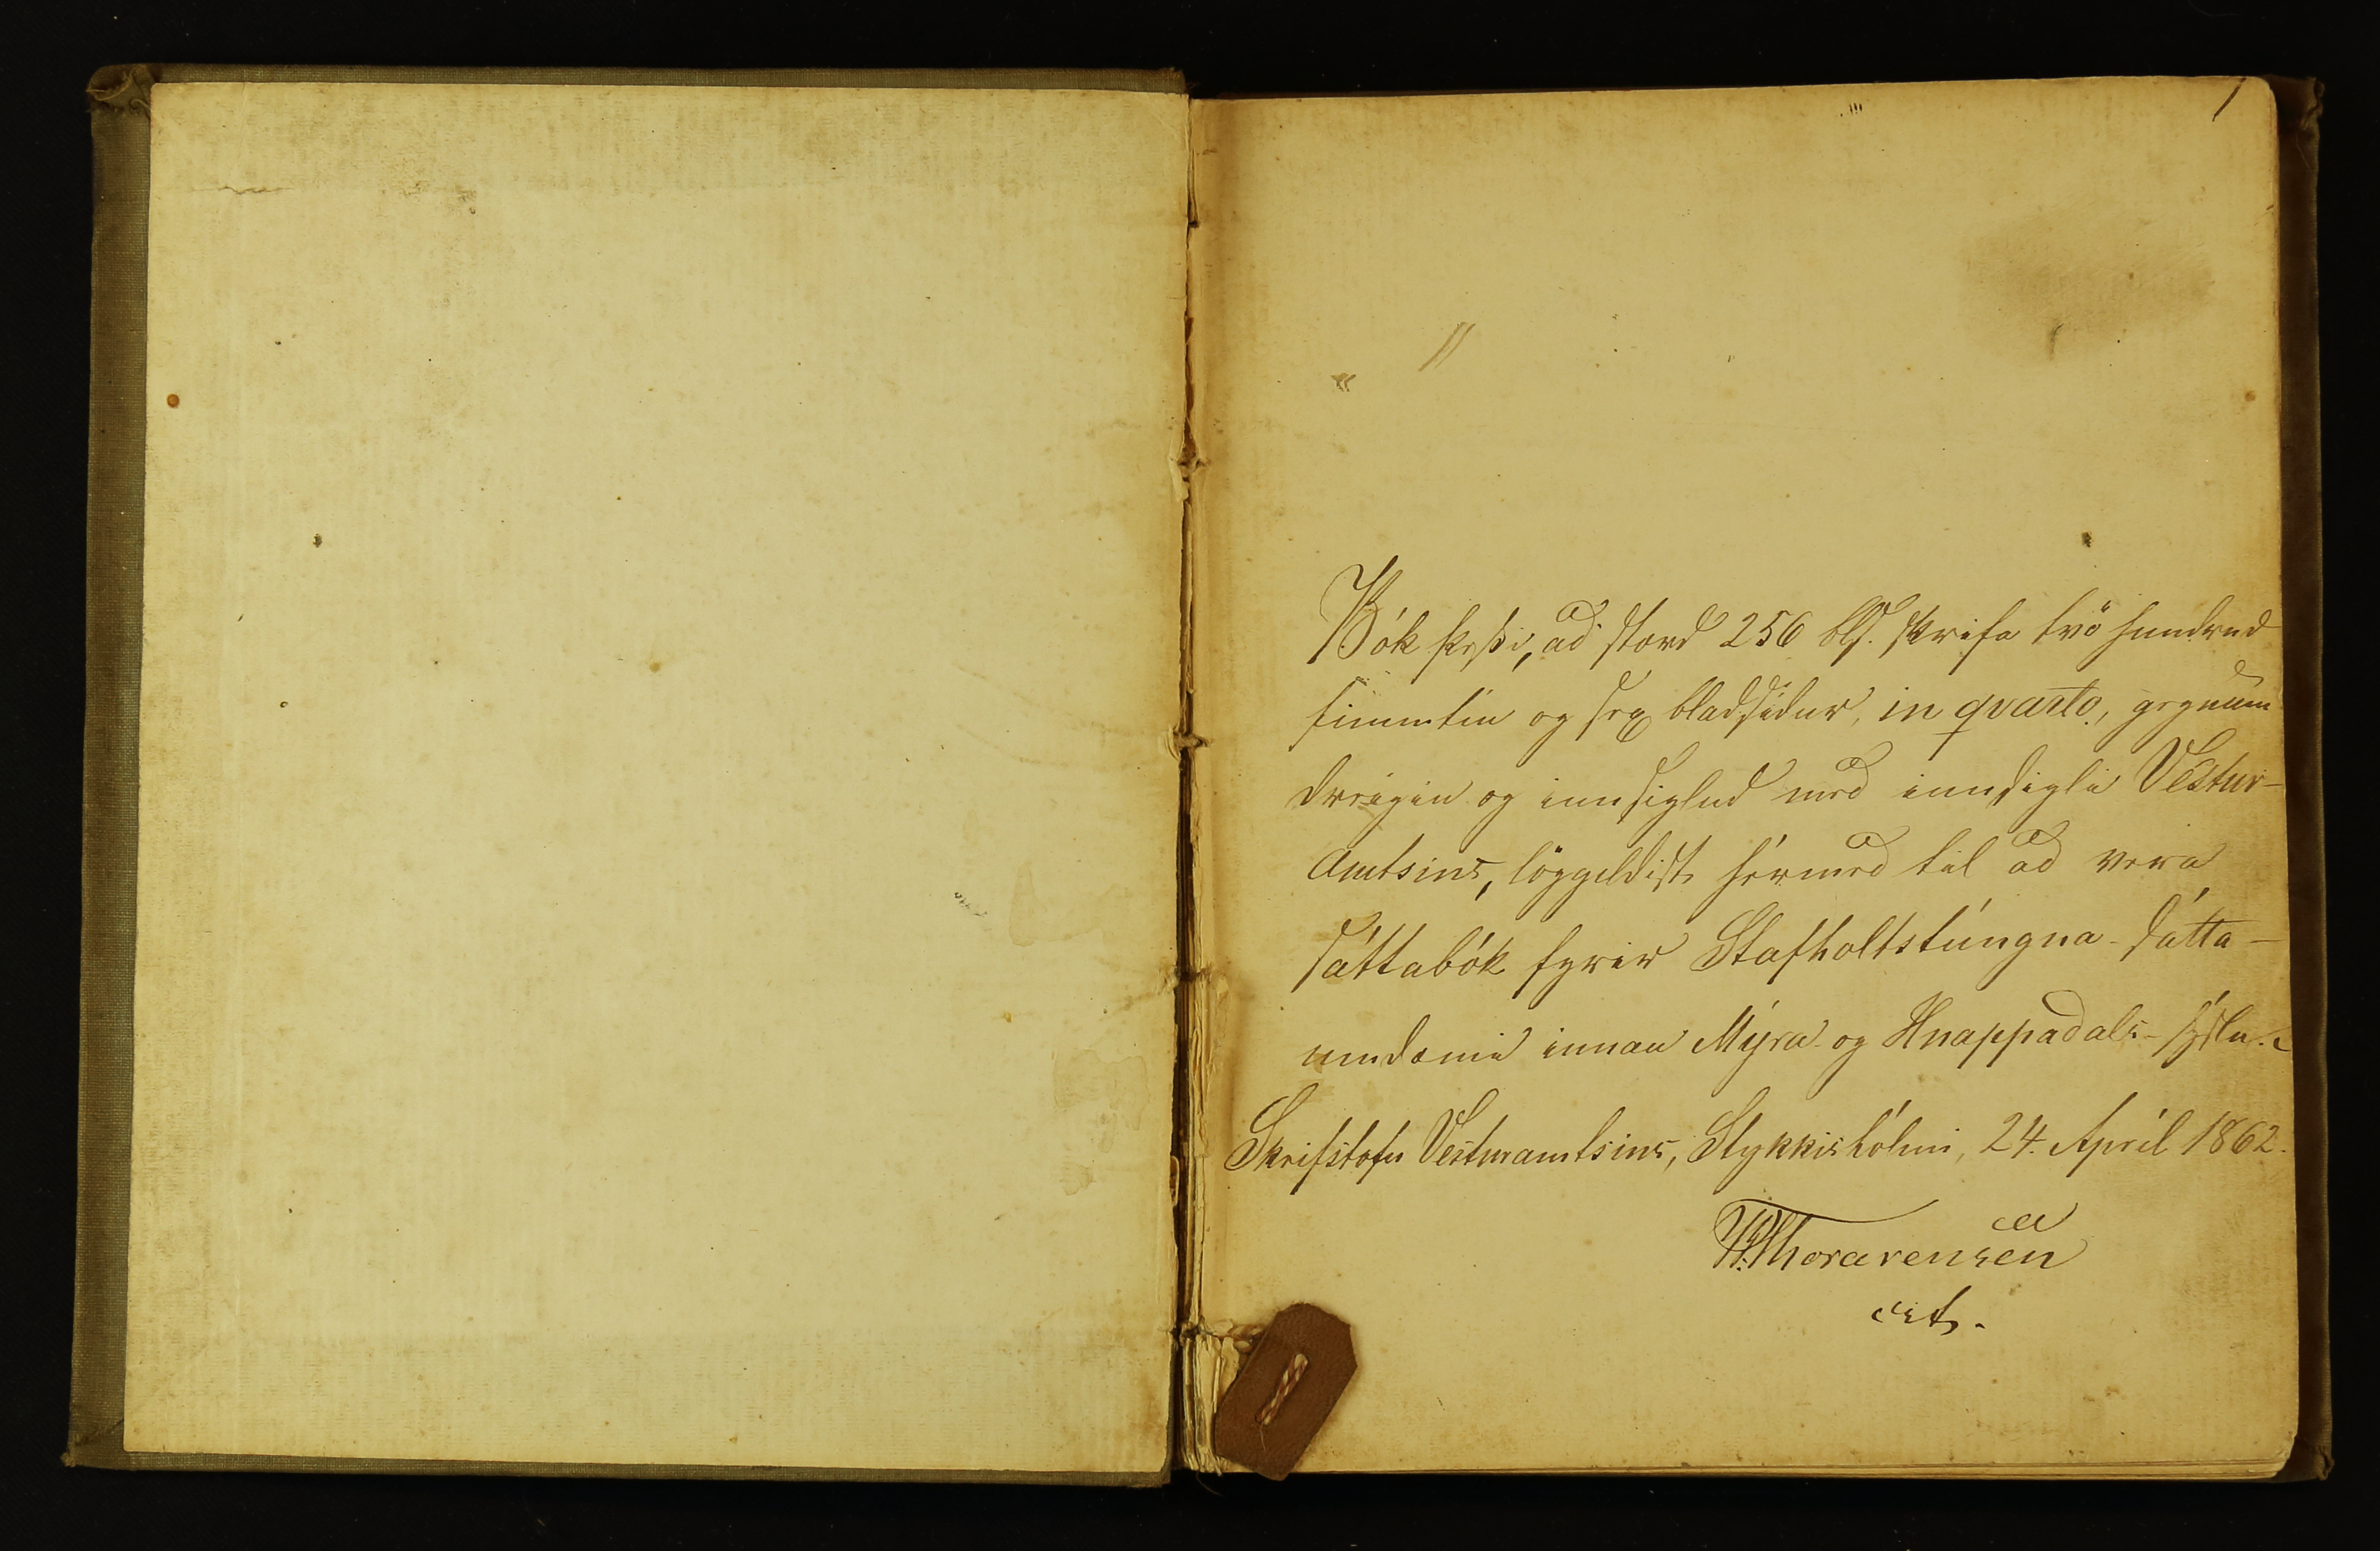 1
Bók þessi, að stærd 256 bls. skrifa tvö hundrud
fimmtíu og sex bladsídur, in qvarto, gegnum
dreigin og innsiglud med innsigli Vestur-
Amtsins, löggildist hérmed til að vera
sáttabók fyrir Stafholtstúngna-sátta-
umdæmi innan Mýra- og Hnappadals-sýslu.
Skrifstofu Vesturamtsins, Stykkishólmi, 24. Apríl 1862.
Thorarensen
cst.